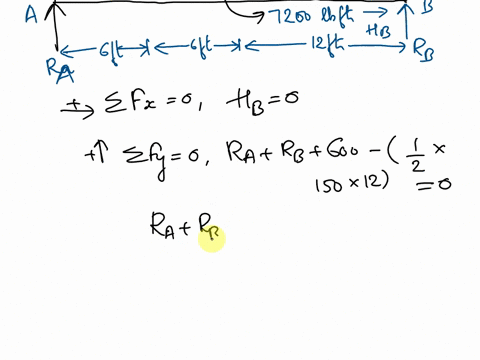 A B
7200 lbft → HB
6ft 6ft 12ft
RA RB
+→ ΣFx = 0, HB = 0
+↑ ΣFy = 0, RA + RB + 600 - (1/2 ×
150 × 12) = 0
RA + RB